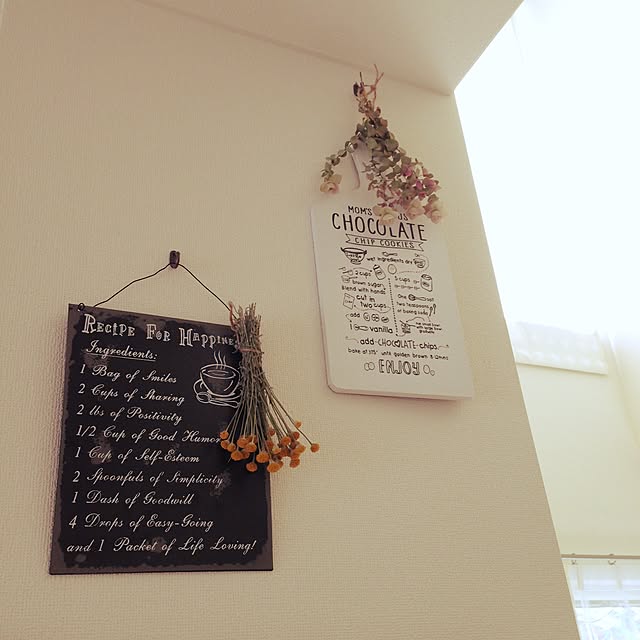 RECIPE FOR HAPPINE
Ingredients:
1 Bag of Smiles
2 Cups of Sharing
2 lbs of Positivity
1/2 Cup of Good Humor
1 Cup of Self-Esteem
2 Spoonfuls of Simplicity
1 Dash of Goodwill
4 Drops of Easy-Going
and 1 Packet of Life Loving!
MOM'S
CHOCOLATE
CHIP COOKIES
wet ingredients dry
2 cups
brown sugar
blend with hands
cut in
two cups
add
1 vanilla
3 cups
One salt
two teaspoons
of baking soda
add-CHOCOLATE-chips
bake at 375° until golden brown 8-12mins
ENJOY